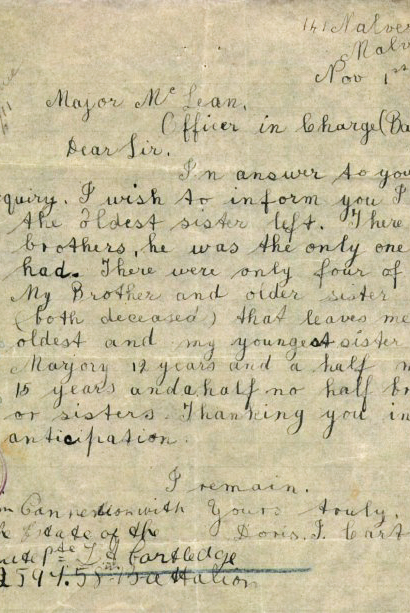 141 Malver
Malv
Nov 1st
Major Mc Lean.
Officer in Charge (Ba
Dear Sir.
In answer to you
quiry. I wish to inform you I
the oldest sister left. There
brothers, he was the only one
had. There were only four of
My Brother and older sister
(both deceased) that leaves me
oldest and my youngest sister
Marjory 12 years and a half m
15 years and a half no half br
or sisters. Thanking you in
anticipation.
I remain.
Yours truly.
Doris. I. Cart
n Connection with
e Estate of the
Pte Cartledge
594. 58 Battalion